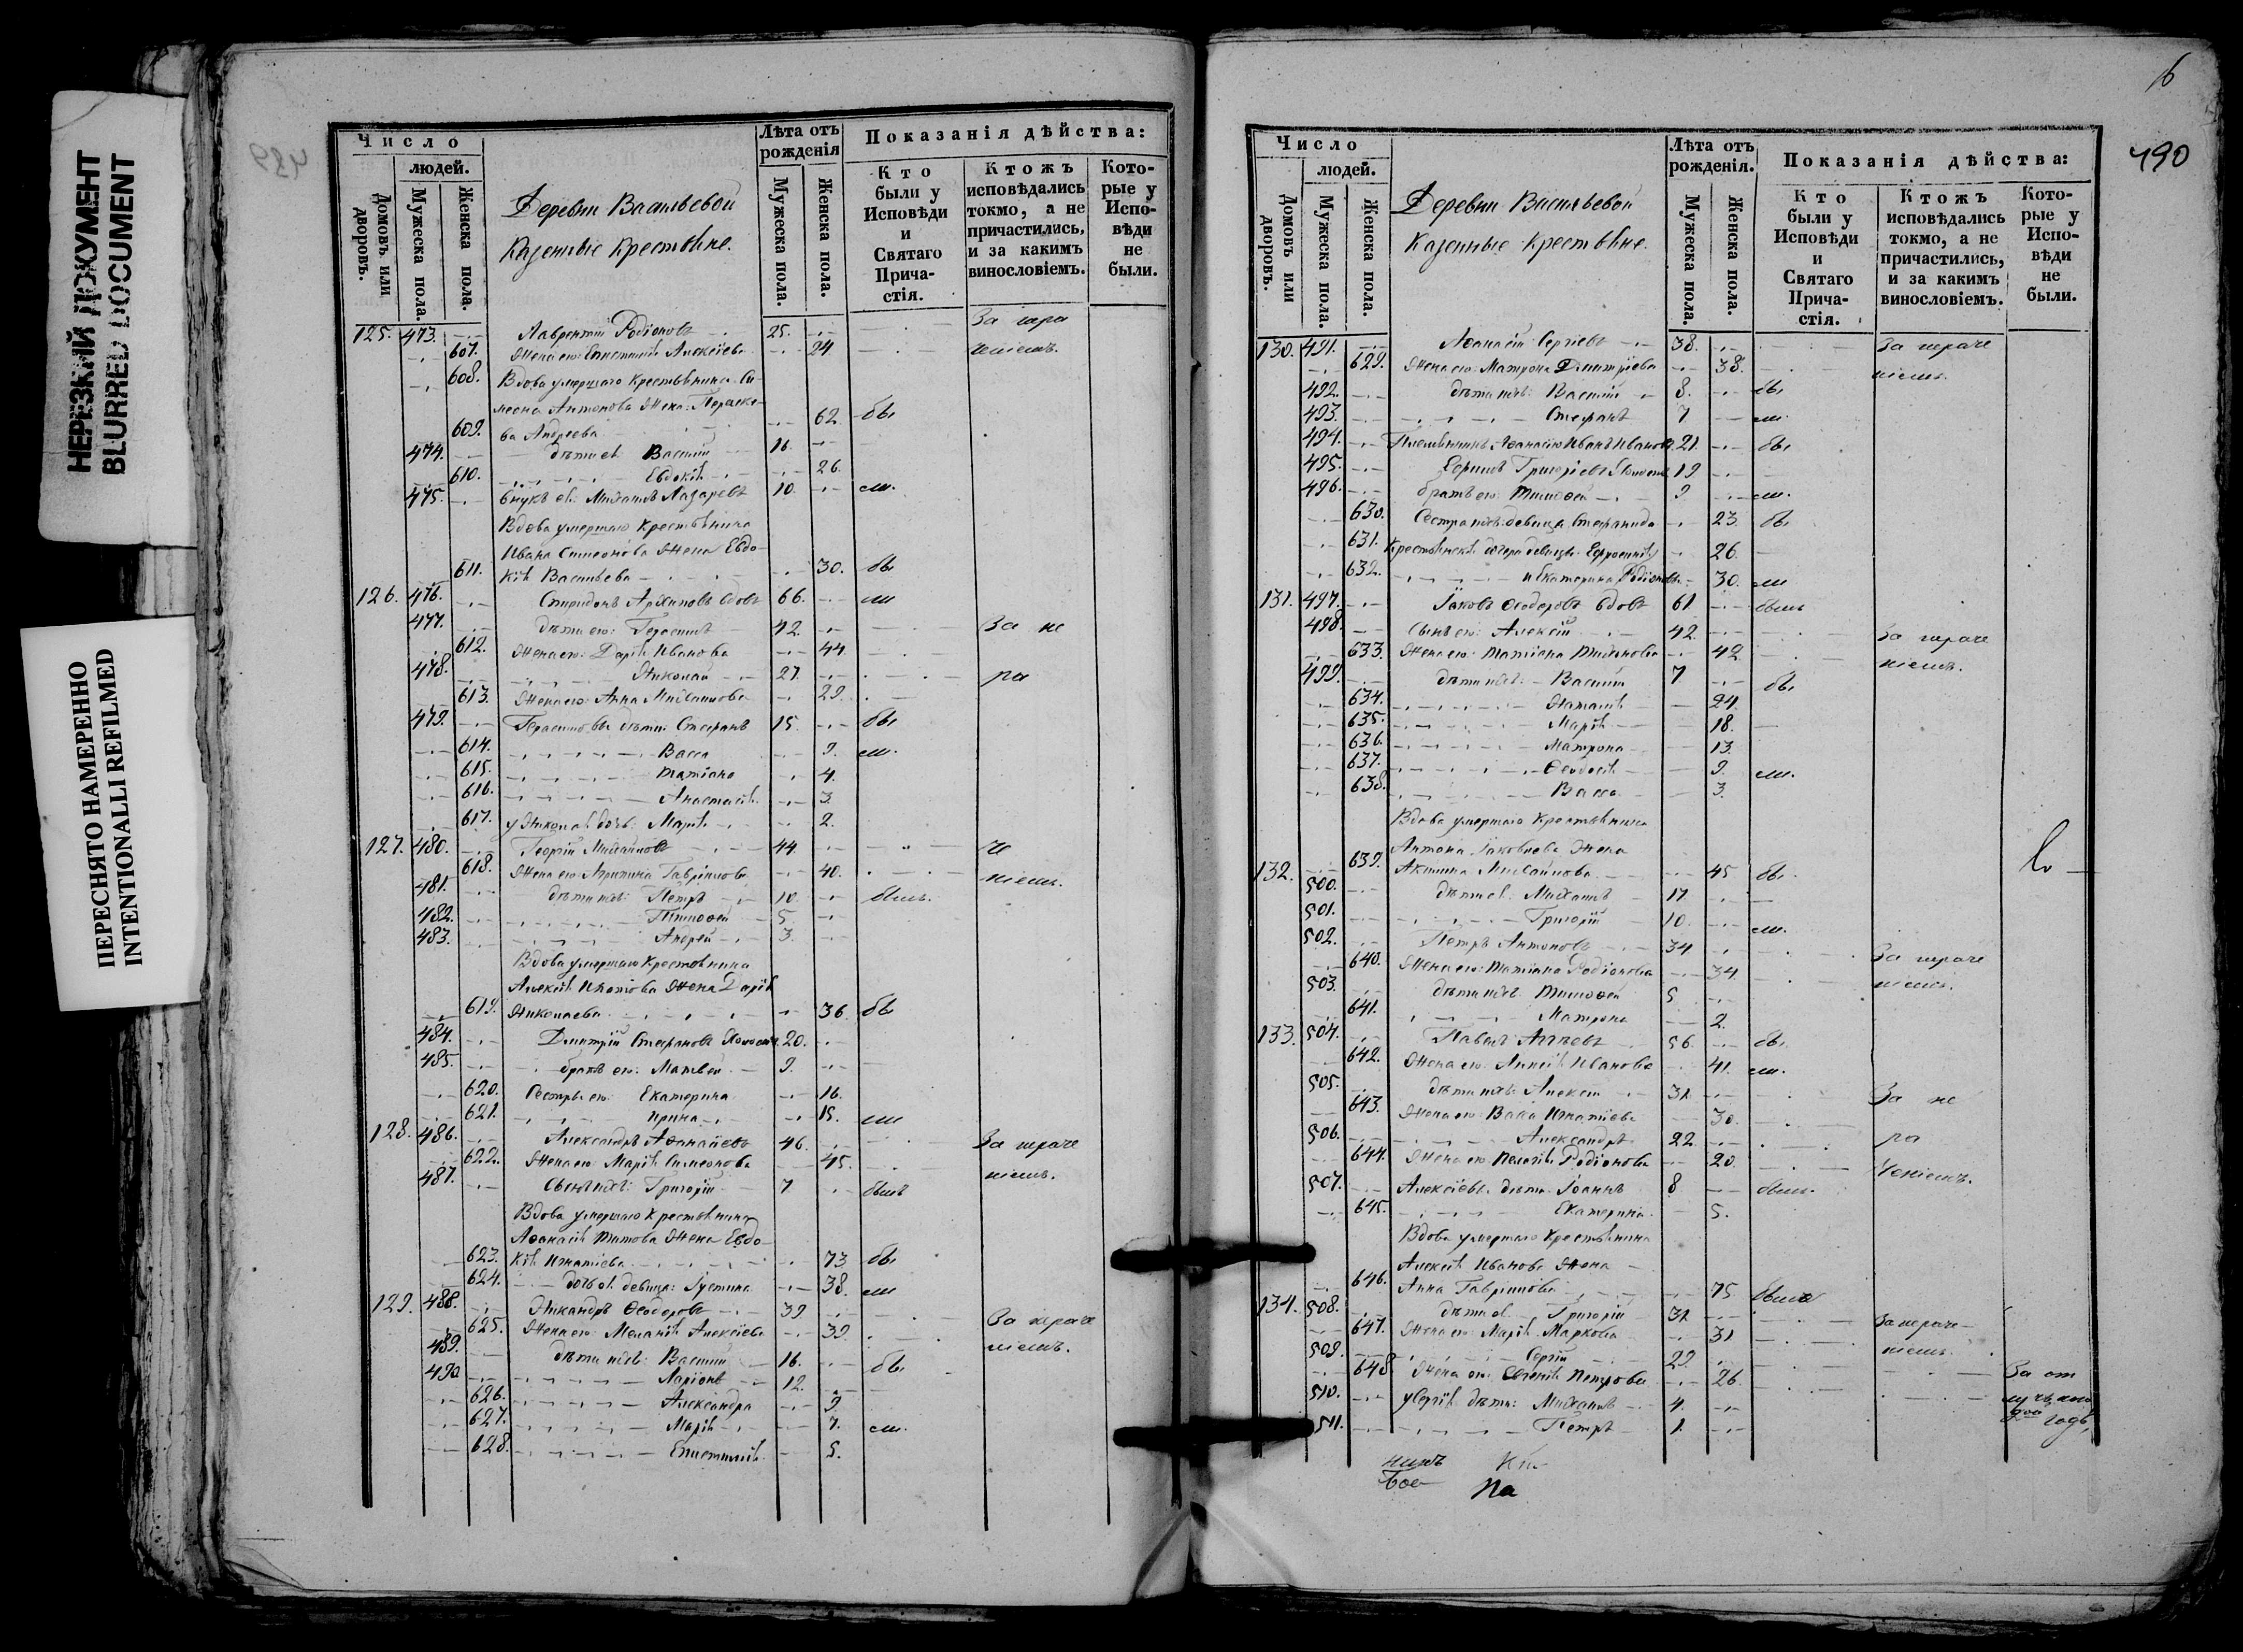 НЕРЕЗКИЙ ДОКУМЕНТ
BLURRED DOCUMENT
ПЕРЕСНЯТО НАМЕРЕННО
INTENTIONALLI REFILMED
489
Число
людей.
Домовъ или дворовъ.
Мужеска пола.
Женска пола.
Деревни Васильевой
Казенные Крестьяне.
Лѣта отъ рожденія
Мужеска пола.
Женска пола.
Показанія дѣйства:
Кто были у Исповѣди и Святаго Прича-стія.
Ктожъ исповѣдались токмо, а не причастились, и за какимъ винословіемъ.
Кото-рые у Испо-вѣди не были.
125. 473. Лаврентій Родіоновъ 25. За нера
607. Жена его: Епистимія Алексіева 24 ченіемъ.
608. Вдова умершаго Крестьянина Си-
меона Антонова Жена: Параске-
609. ва Андреева 62. бы
474. дѣти ея: Василій 16.
610. Евдокія 26.
475. внукъ ея: Михаилъ Лазаревъ 10. ли.
Вдова умершаго Крестьянина
Ивана Симеонова Жена Евдо-
611. кія Васильева 30. бы
126. 476. Спиридонъ Архиповъ вдовъ 66. ли
477. дѣти его: Герасимъ 42. За не
612. Жена его: Дарія Иванова 44
478. Николай 27. ра
613. Жена его: Анна Михаилова 29.
479. Герасимовы дѣти: Стефанъ 15 бы
614. Васса 9. ли.
615. Татіана 4.
616. Анастасія 3.
617. у Николая дочь: Марія 2.
127. 480. Георгій Михайловъ 44. че
618. Жена его: Агрипина Гавріилова 40. ніемъ.
481. дѣти ихъ: Петръ 10. былъ.
482. Тимофей 5
483. Андрей 3
Вдова умершаго Крестьянина
Алексія Жена Дарія
619. Николаева 36. бы
484. Дмитрій Стефановъ Холостъ 20.
485. братъ его: Матвей 9.
620. Сестры его: Екатерина 16.
621. Ирина 15. ли
128. 486. Александръ Афанасіевъ 46. За нераче
622. Жена его Марія Симеонова 45. ніемъ.
487. Сынъ ихъ: Григорій 7 былъ
Вдова умершаго Крестьянина
Афанасія Титова Жена Евдо
623. кія Игнатіева 73 бы
624. дочь ея девица: Іустина 38. ли
129. 488. Никандръ Феодоровъ 39 За нераче
625. Жена его: Меланія Алексіева 39. ніемъ.
489. дѣти ихъ: Василій 16. бы
490 Ларіонъ 12.
626. Александра 9
627. Марія 7. ли.
628. Епистимія 5.
6
490
Число
людей.
Домовъ или дворовъ.
Мужеска пола.
Женска пола.
Деревни Васильевой
Казенные Крестьяне.
Лѣта отъ рожденія.
Мужеска пола.
Женска пола.
Показанія дѣйства:
Кто были у Исповѣди и Святаго Прича-стія.
Ктожъ исповѣдались токмо, а не причастились, и за какимъ винословіемъ.
Кото-рые у Испо-вѣди не были.
130. 491. Афанасій Сергіевъ 38. За нераче
629. Жена его: Матрона Димитріева 38. ніемъ.
492. дѣти ихъ: Василій 8. бы
493. Стефанъ 7 ли
494. Племянникъ Афанасію Иванъ Ивановъ 21. бы
495. Григоріевъ Холостъ 19
496. братъ его: Тимофей 9 ли.
630. Сестра ихъ: девица Стефанида 23. бы
631. Крестьянскія дочери девицы: Ефросинія 26.
632. и Екатерина Родіоновы 30. ли
131. 497. Іаковъ Феодоровъ вдовъ 61. былъ
498. Сынъ его: Алексій 42. За нераче
633. Жена его: Татіана Михайлова 42 ніемъ.
499. дѣти ихъ: Василій 7 бы
634. Наталія 24
635. Марія 18.
636. Матрона 13.
637. Феодосія 9. ли.
638. Васса 3.
Вдова умершаго Крестьянина
Антона Іаковлева Жена
132. 639. Акилина Михайлова 45 бы
500. дѣти ея: Михаилъ 17
501. Григорій 10. ли.
502. Петръ Антоновъ 34 За нераче
640. Жена его: Татіана Родіонова 34 ніемъ.
503. дѣти ихъ: Тимофей 5
641. Матрона 2.
133. 504. Павелъ 56. бы
642. Жена его Иванова 41. ли.
505. дѣти ихъ: Алексій 31. За не
643. Жена его: Васса Игнатіева 30.
506. Александръ 22. ра
644. Жена его Пелагія Родіонова 20. ченіемъ.
507. Алексіевы дѣти Іоаннъ 8 были.
645. Екатерина 5.
Вдова умершаго Крестьянина
Алексія Иванова Жена
646. Анна Гавріилова 75 была
134. 508. дѣти ея: Григорій 31 За нераче-
647. Жена его: Марія Маркова 31 ніемъ.
509. Сергій 29.
648 Жена его: Евгенія Петрова 26 За от
510. у Сергія дѣти: Михаилъ 4.
511. Петръ 1. годъ